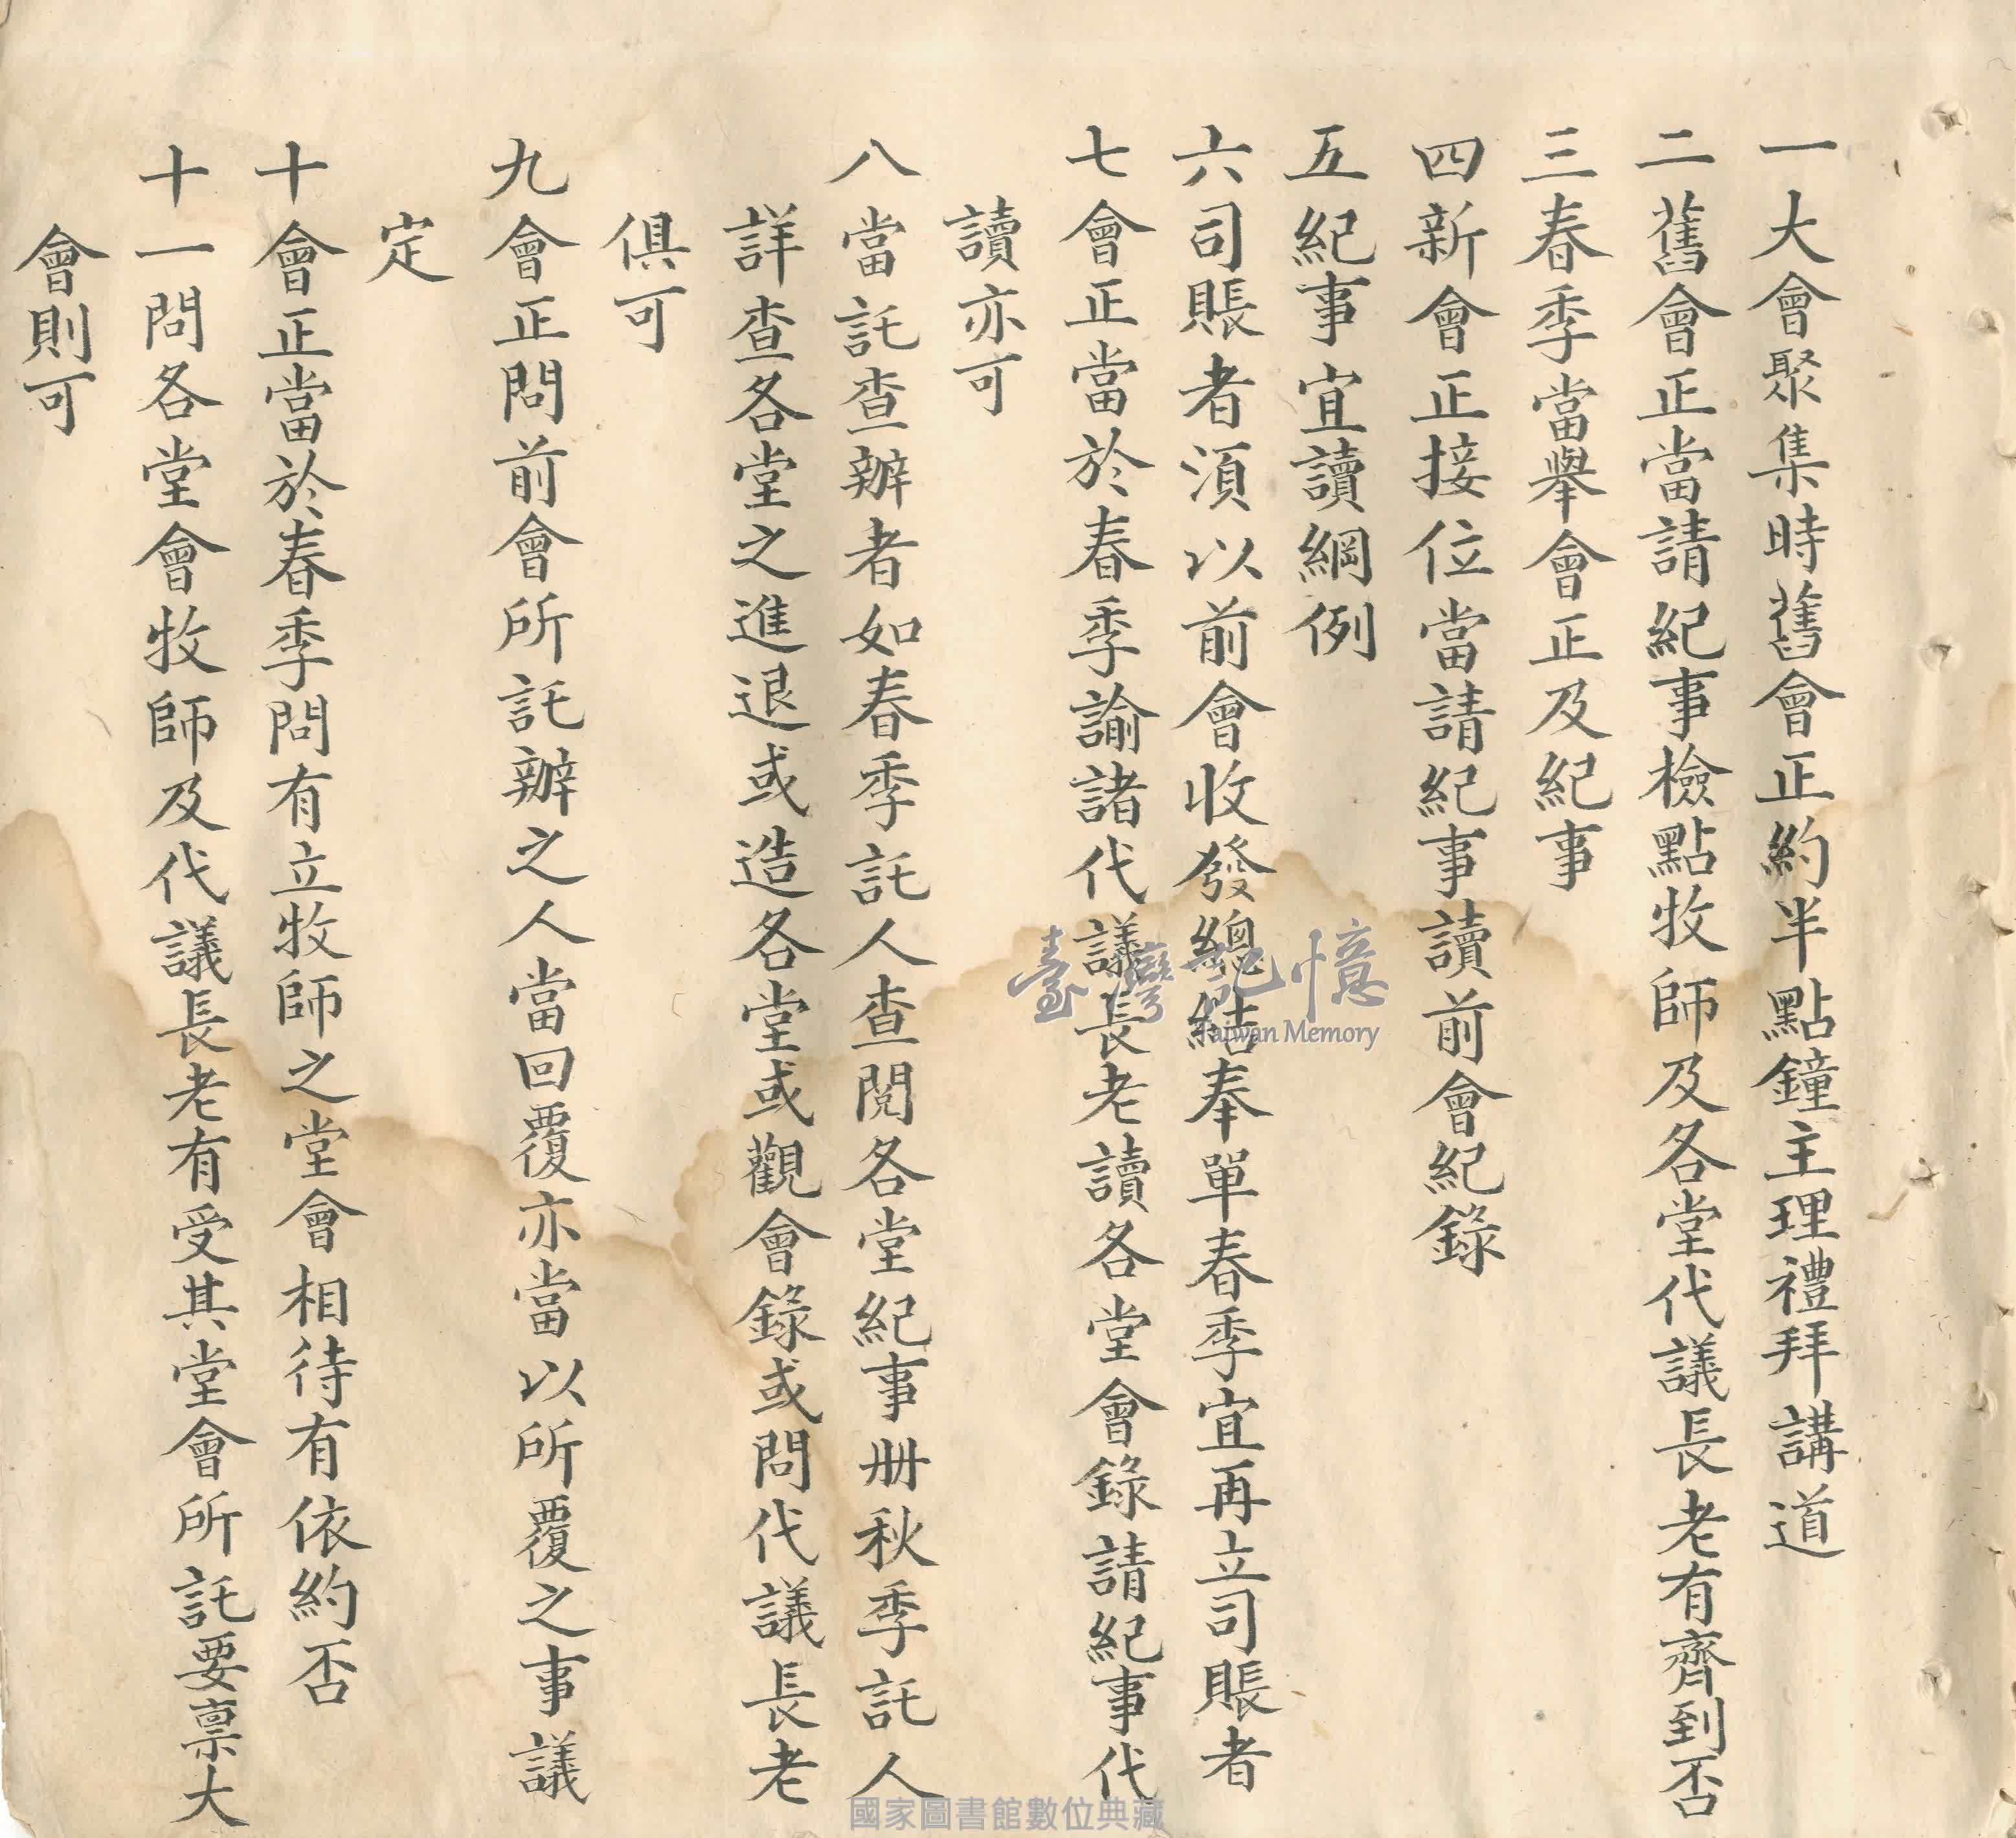 一大會聚集時舊會正約半點鐘主理禮拜講道
二舊會正當請紀事檢點牧師及各堂代議長老有齊到否
三春季當舉會正及紀事
四新會正接位當請紀事讀前會紀錄
五紀事宜讀綱例
六司賬者須以前會收發總結奉單春季宜再立司賬者
七會正當於春季諭諸代議長老讀各堂會錄請紀事代
讀亦可
八當託查辦者如春季託人查閱各堂紀事册秋季託人
詳查各堂之進退或造各堂或觀會錄或問代議長老
俱可
九會正問前會所託辦之人當回覆亦當以所覆之事議
定
十會正當於春季問有立牧師之堂會相待有依約否
十一問各堂會牧師及代議長老有受其堂會所託要禀大
會則可
臺灣記憶
Taiwan Memory
國家圖書館數位典藏